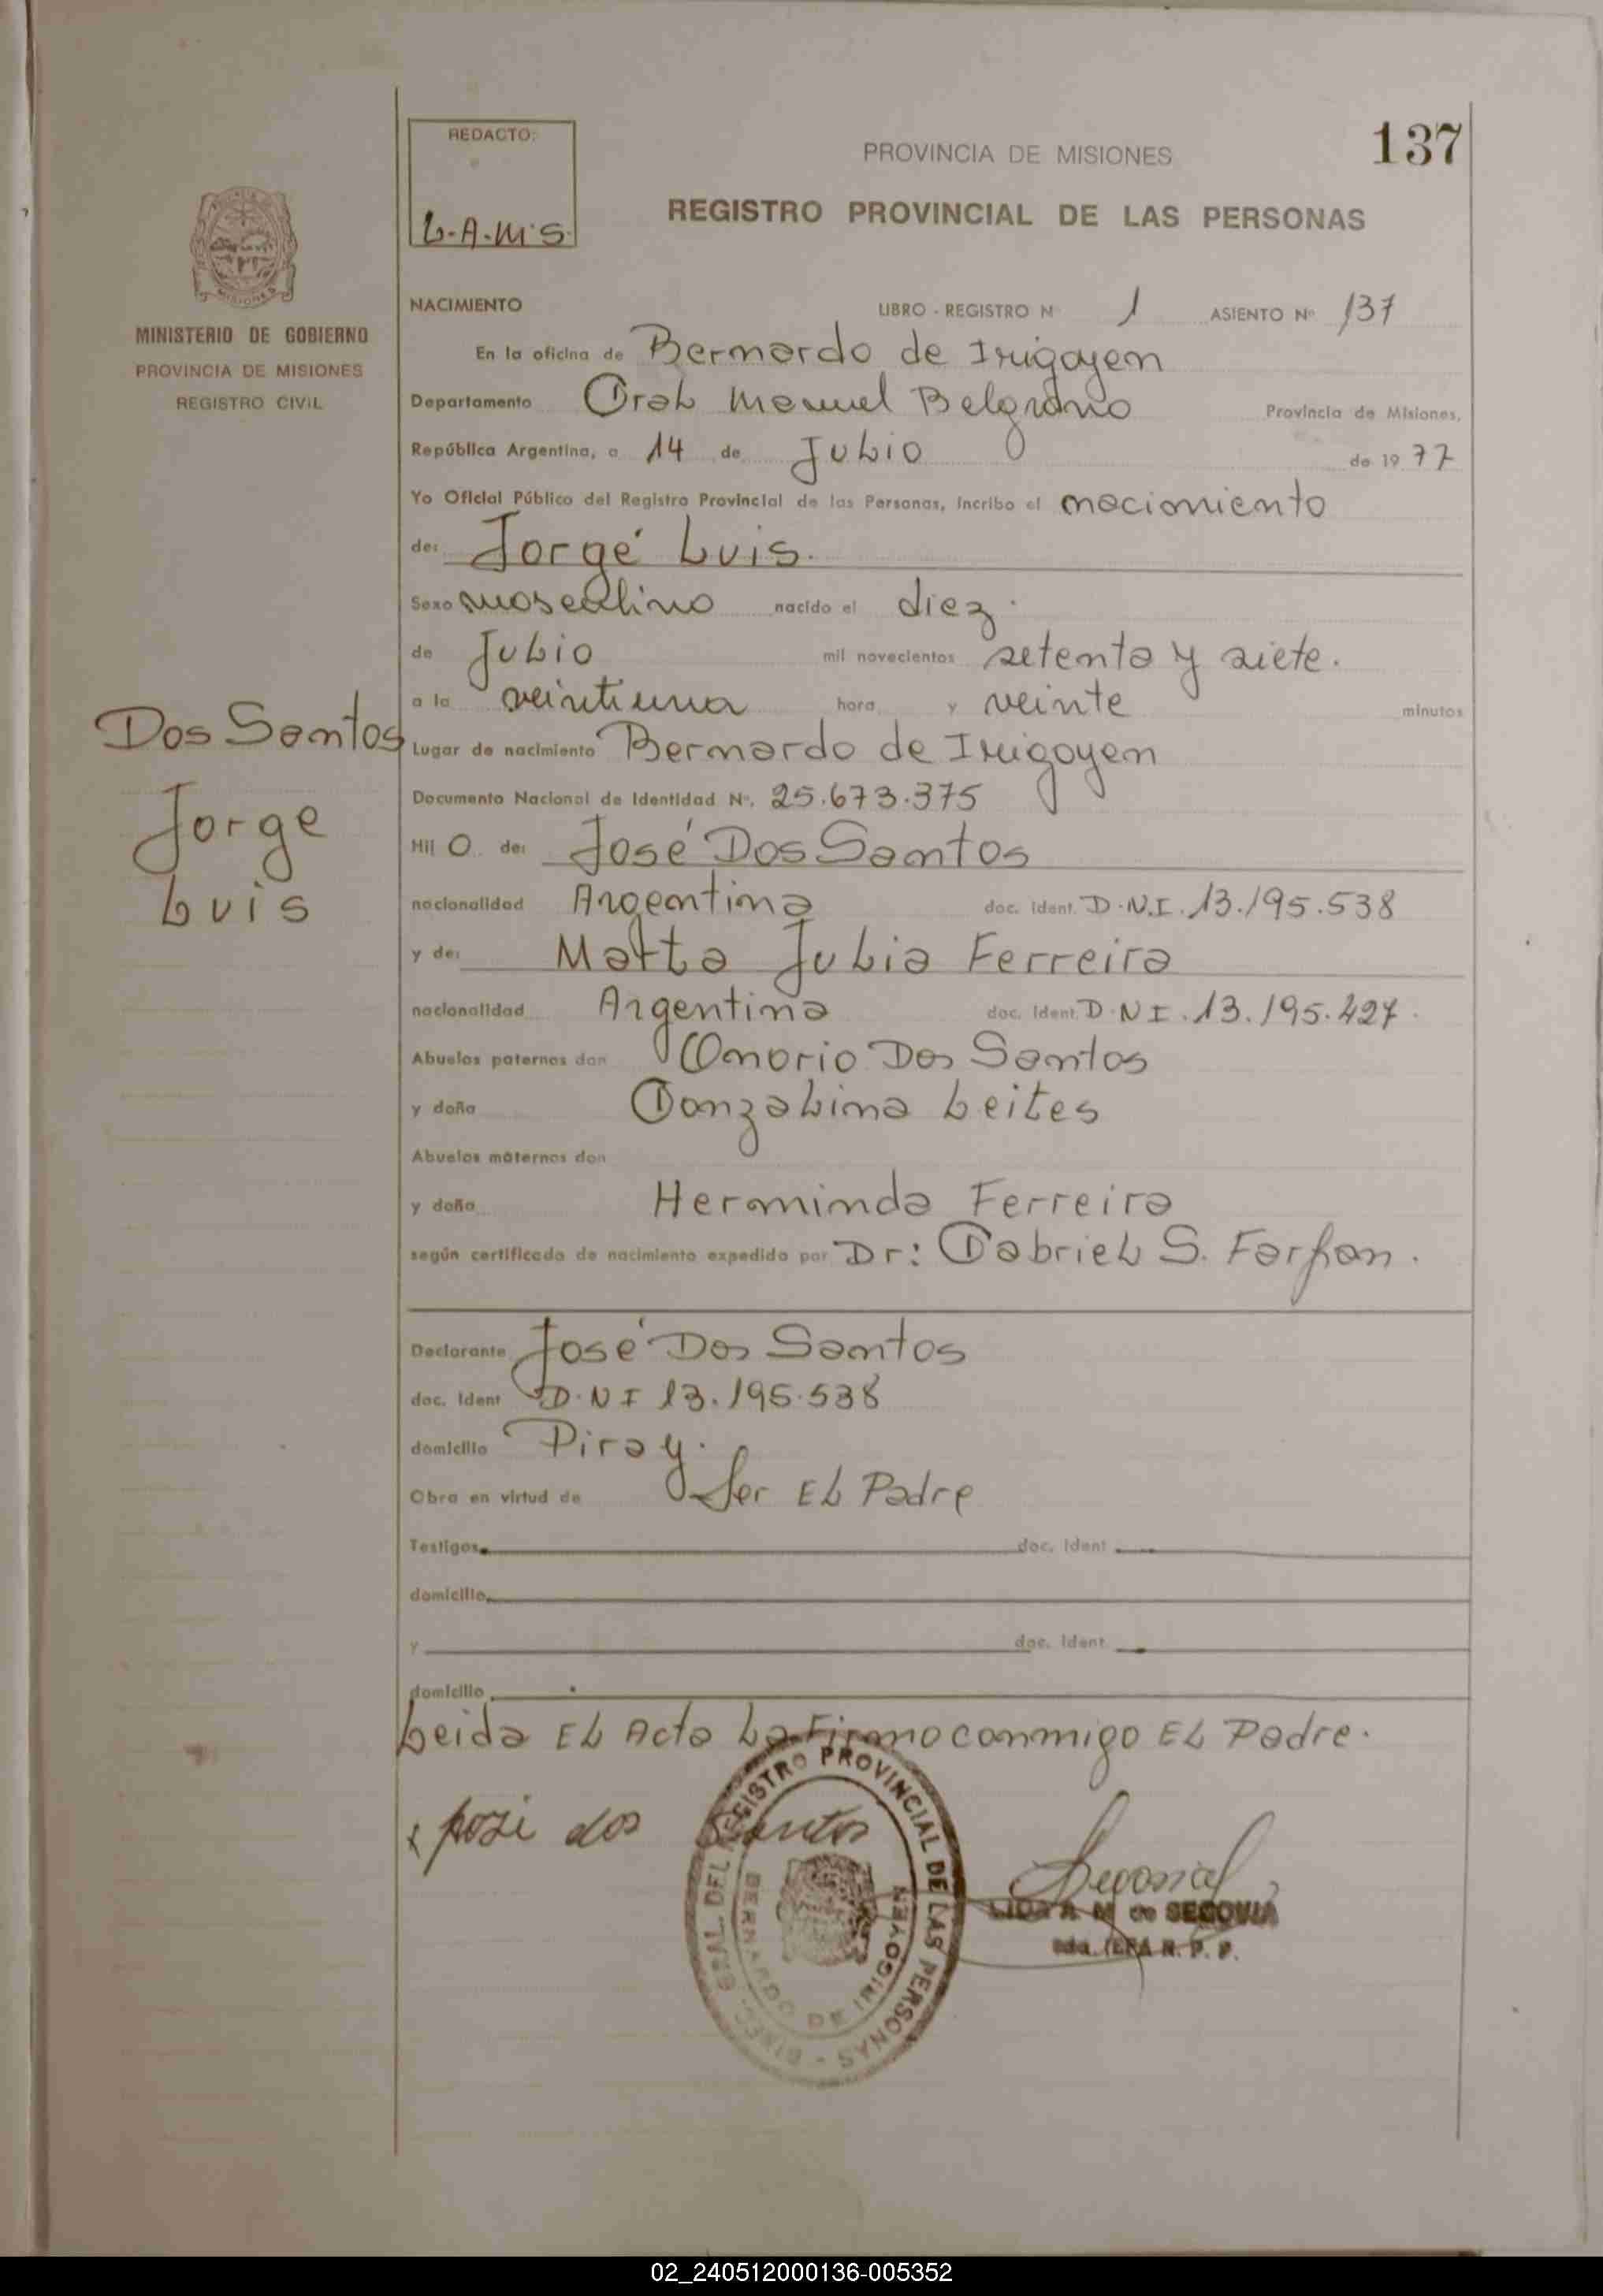 137
REDACTO:
L.A.M.S.
PROVINCIA DE MISIONES
REGISTRO PROVINCIAL DE LAS PERSONAS
MINISTERIO DE GOBIERNO
PROVINCIA DE MISIONES
REGISTRO CIVIL
NACIMIENTO LIBRO - REGISTRO N 1 ASIENTO Nº 137
En la oficina de Bernardo de Irigoyen
Departamento Gral Manuel Belgrano Provincia de Misiones,
República Argentina, a 14 de Julio de 19 77
Yo Oficial Público del Registro Provincial de las Personas, incribo el nacimiento
de: Jorgé Luis.
Sexo masculino nacido el diez.
de Julio mil novecientos setenta y siete.
a la veintiuna hora y veinte minutos
Dos Santos
Jorge
Luis
Lugar de nacimiento Bernardo de Irigoyen
Documento Nacional de Identidad Nº. 25.673.375
Hij O de: José Dos Santos
nacionalidad Argentina doc. Ident. D.N.I. 13.195.538
y de: Marta Julia Ferreira
nacionalidad Argentina doc. Ident. D.N.I. 13.195.427.
Abuelos paternos don Onorio Dos Santos
y doña Gonzalina Leites
Abuelos maternos don
y doña Herminda Ferreira
según certificado de nacimiento expedido por Dr: Gabriel S. Farfan.
Declarante José Dos Santos
doc. Ident D.N I 13.195.538
domicilio Piray.
Obra en virtud de Ser El Padre
Testigos doc. Ident
domicilio
y doc. Ident
domicilio
Leida El Acta La Firmo conmigo El Padre.
x josé dos Santos
DIREC. GRAL. DEL REGISTRO PROVINCIAL DE LAS PERSONAS -
BERNARDO DE IRIGOYEN
M de SEGOVIA
JEFA R. P. P.
02_240512000136-005352